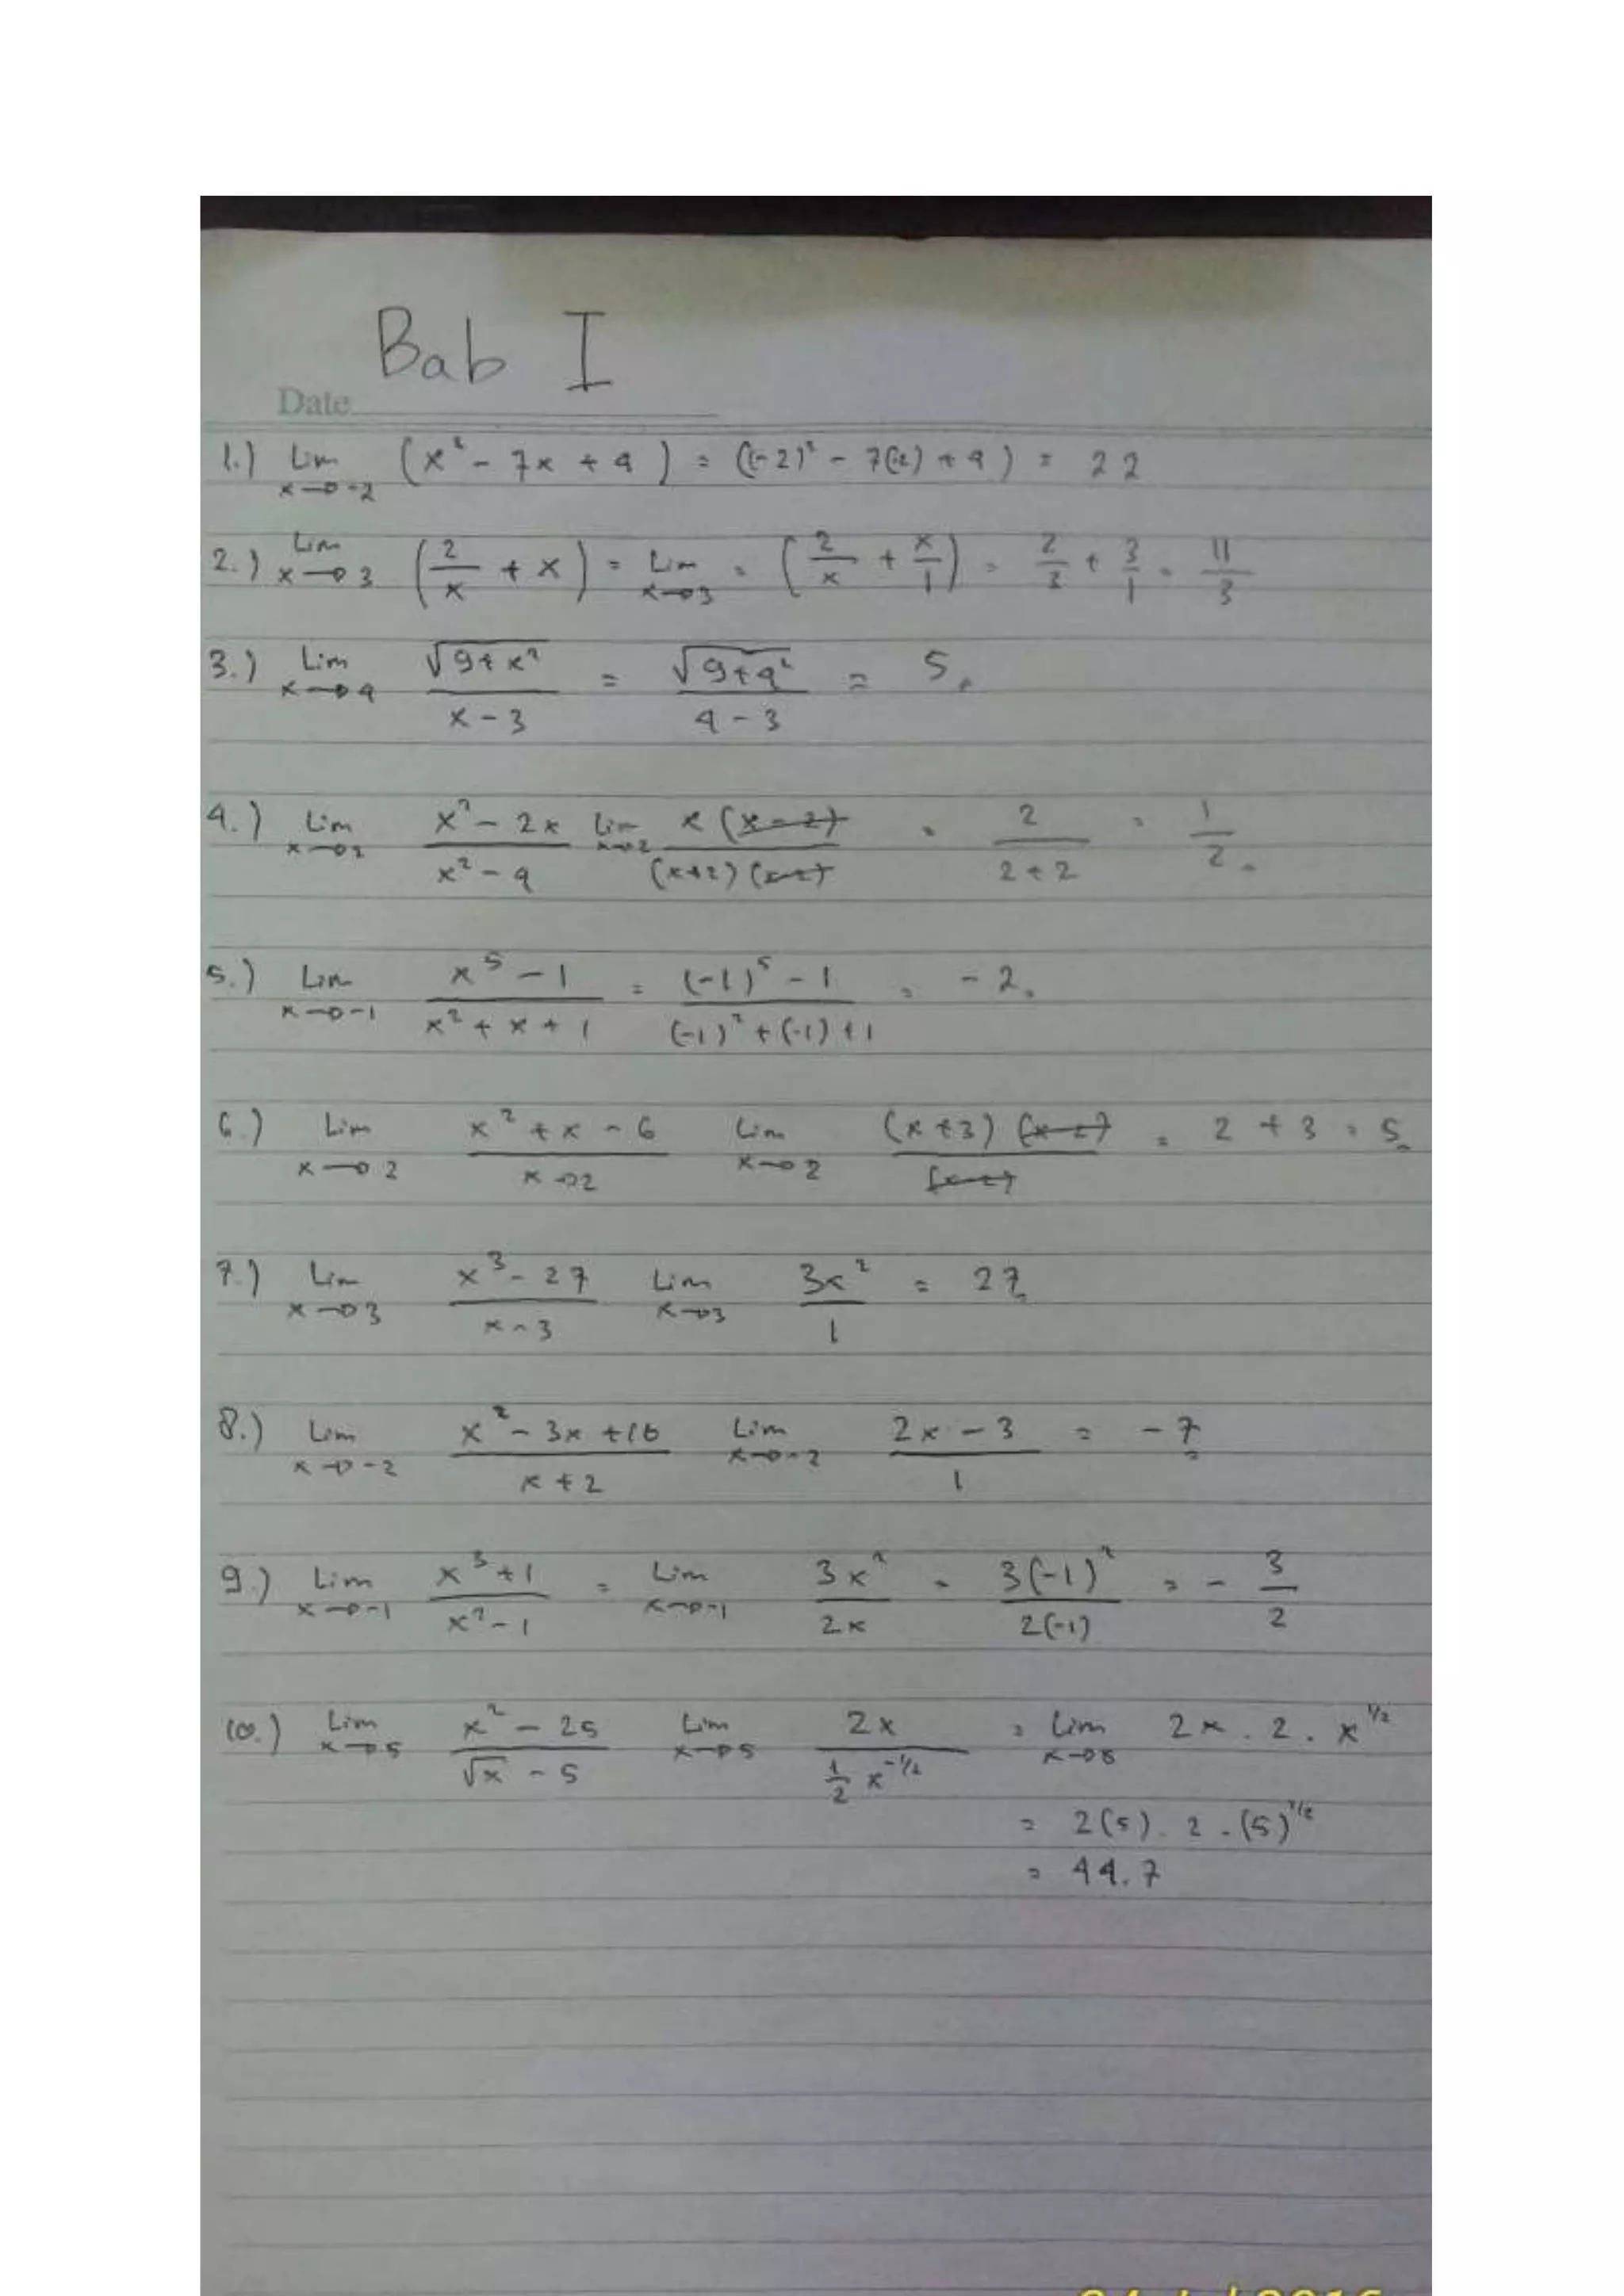 Bab I
Date
1.) Lim x→-2 (x² - 7x + 4) = ((-2)² - 7(-2) + 4) = 22
2.) Lim x→3 (2/x + x) = Lim x→3 = (2/x + x/1) = 2/3 + 3/1 = 11/3
3.) Lim x→4 √(9+x²) / (x-3) = √(9+4²) / (4-3) = 5
4.) Lim x→2 (x² - 2x) / (x² - 4) Lim x→2 x(x-2) / (x+2)(x-2) = 2 / (2+2) = 1/2
5.) Lim x→-1 (x⁵ - 1) / (x² + x + 1) = ((-1)⁵ - 1) / ((-1)² + (-1) + 1) = -2
6.) Lim x→2 (x² + x - 6) / (x→2) Lim x→2 (x+3)(x-2) / (x-2) = 2 + 3 = 5
7.) Lim x→3 (x³ - 27) / (x-3) Lim x→3 3x² / 1 = 27
8.) Lim x→-2 (x² - 3x + 10) / (x+2) Lim x→-2 (2x - 3) / 1 = -7
9.) Lim x→-1 (x³ + 1) / (x² - 1) = Lim x→-1 3x² / 2x = 3(-1)² / 2(-1) = - 3/2
10.) Lim x→5 (x² - 25) / (√x - 5) Lim x→5 2x / (1/2 x^-1/2) = Lim x→5 2x . 2 . x^1/2
= 2(5) . 2 . (5)^1/2
= 44.7